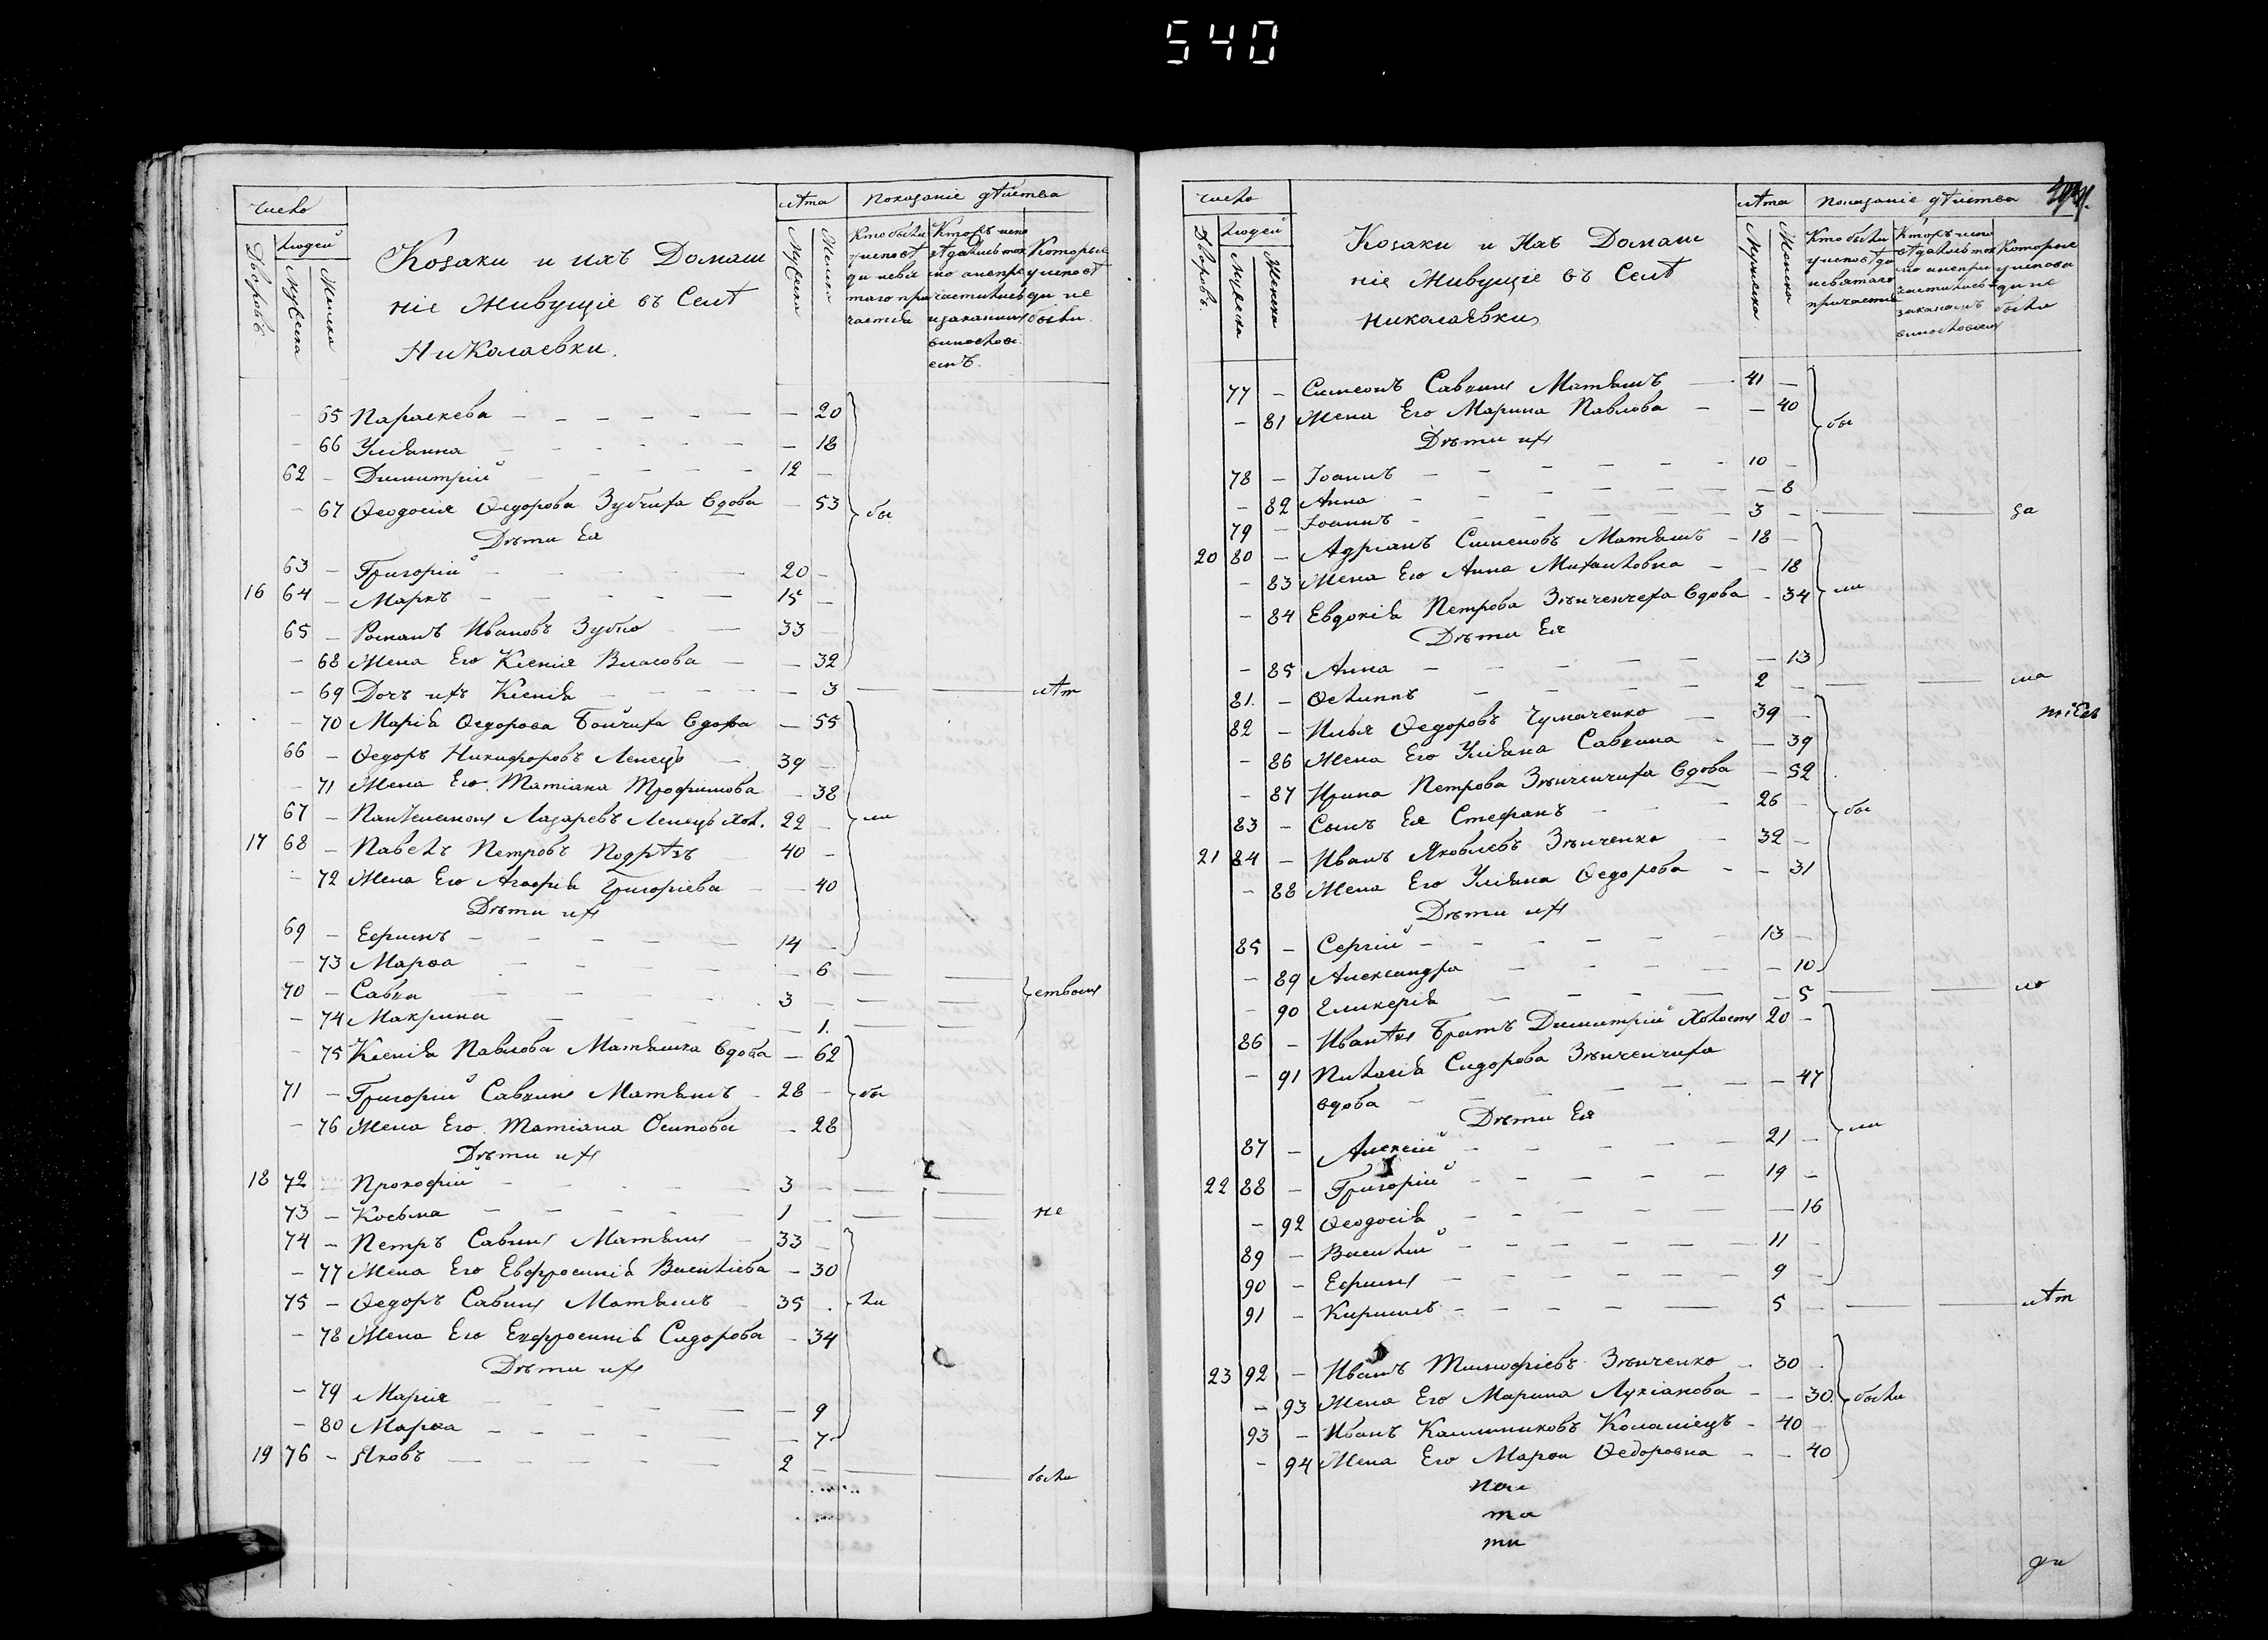 540
число
лѣта
показаніе дѣйства
Дворовъ
людей
Мужеска
Женска
Козаки и ихъ Домаш
ніе Живущіе въ Селѣ
Николаевки.
Мужеска
Женска
Кто были
у исповѣ
ди и свя
таго при
частія
Которые
у исповѣ
ди не
были
65 Параскева 20
66 Уліянна 18
62 Димитрій 12
67 Ѳеодосія Ѳедорова Зубчиха вдова 53 бы
Дѣти Ея
63 Григорій 20
16 64 Маркъ 15
65 Романъ Ивановъ Зубко 33
68 Жена Его Ксенія Власова 32
69 Дочъ ихъ Ксенія 3 лѣт
70 Марія Ѳедорова Бойчиха вдова 55
66 Ѳедоръ Никифоровъ Ленецъ 39
71 Жена Его Татіана Трофимова 38
67 Пантелеимонъ Лазаревъ Ленецъ хол. 22 ли
17 68 Павелъ Петровъ Подрѣзъ 40
72 Жена Его Агафія Григоріева 40
Дѣти ихъ
69 Ефимъ 14
73 Марѳа 6
70 Савва 3 ствомъ
74 Макрина 1.
75 Ксенія Павлова Матяшка вдова 62
71 Григорій Саввинъ Матяшъ 28 бы
76 Жена Его Татіана Осипова 28
Дѣти ихъ
18 72 Прокофій 3
73 Косьма 1 не
74 Петръ Саввинъ Матяшъ 33
77 Жена Его Евфросинія Василіева 30
75 Ѳедоръ Саввинъ Матяшъ 35 ли
78 Жена Его Евфросинія Сидорова 34
Дѣти ихъ
79 Марія 9
80 Марѳа 7
19 76 Яковъ 2 были
число
лѣта
показаніе дѣйства
Дворовъ.
людей
Мужеска
Женска
Козаки и Ихъ Домаш
ніе Живущіе въ Селѣ
Николаевки
Мужеска
Женска
Кто были
у исповѣди
и святаго
причастія
Которые
у испові
ди не
были
77 Симеонъ Саввинъ Матяшъ 41
81 Жена Его Марина Павлова 40 бы
Дѣти ихъ
78 Іоаннъ 10
82 Анна 8
79 Іоаннъ 3 за
20 80 Адріанъ Сименовъ Матяшъ 18
83 Жена Его Анна Михаиловна 18
84 Евдокія Петрова Зѣнченчеха вдова 34 ли
Дѣти Ея
85 Анна 13
81. Ѳилиппъ 2 ма
82 Илья Ѳедоровъ Чумаченко 39
86 Жена Его Уліяна Саввина 39
87 Ирина Петрова Зѣнченчиха вдова 52
83 Сынъ Ея Стефанъ 26 бы
21 84 Иванъ Яковлевъ Зѣнченко 32
88 Жена Его Уліяна Ѳедорова 31
Дѣти ихъ
85 Сергій 13
89 Александра 10
90 Гликерія 5 ло
86 Братъ Димитрій Холостъ 20
91 Пелагія Сидорова Зѣнченчиха
вдова 47
Дѣти Ея
87 Алексій 21 ли
22 88 Григорій 19
92 Ѳеодосія 16
89 Василій 11
90 Ефимъ 9
91 Кириллъ 5 лѣт
23 92 Иванъ Тимофіевъ Зѣнченко 30
93 Жена Его Марина Лукіанова 30 были
93 Иванъ Калинниковъ Коламіецъ 40
94 Жена Его Марѳа Ѳедоровна 40
та
ти
ди